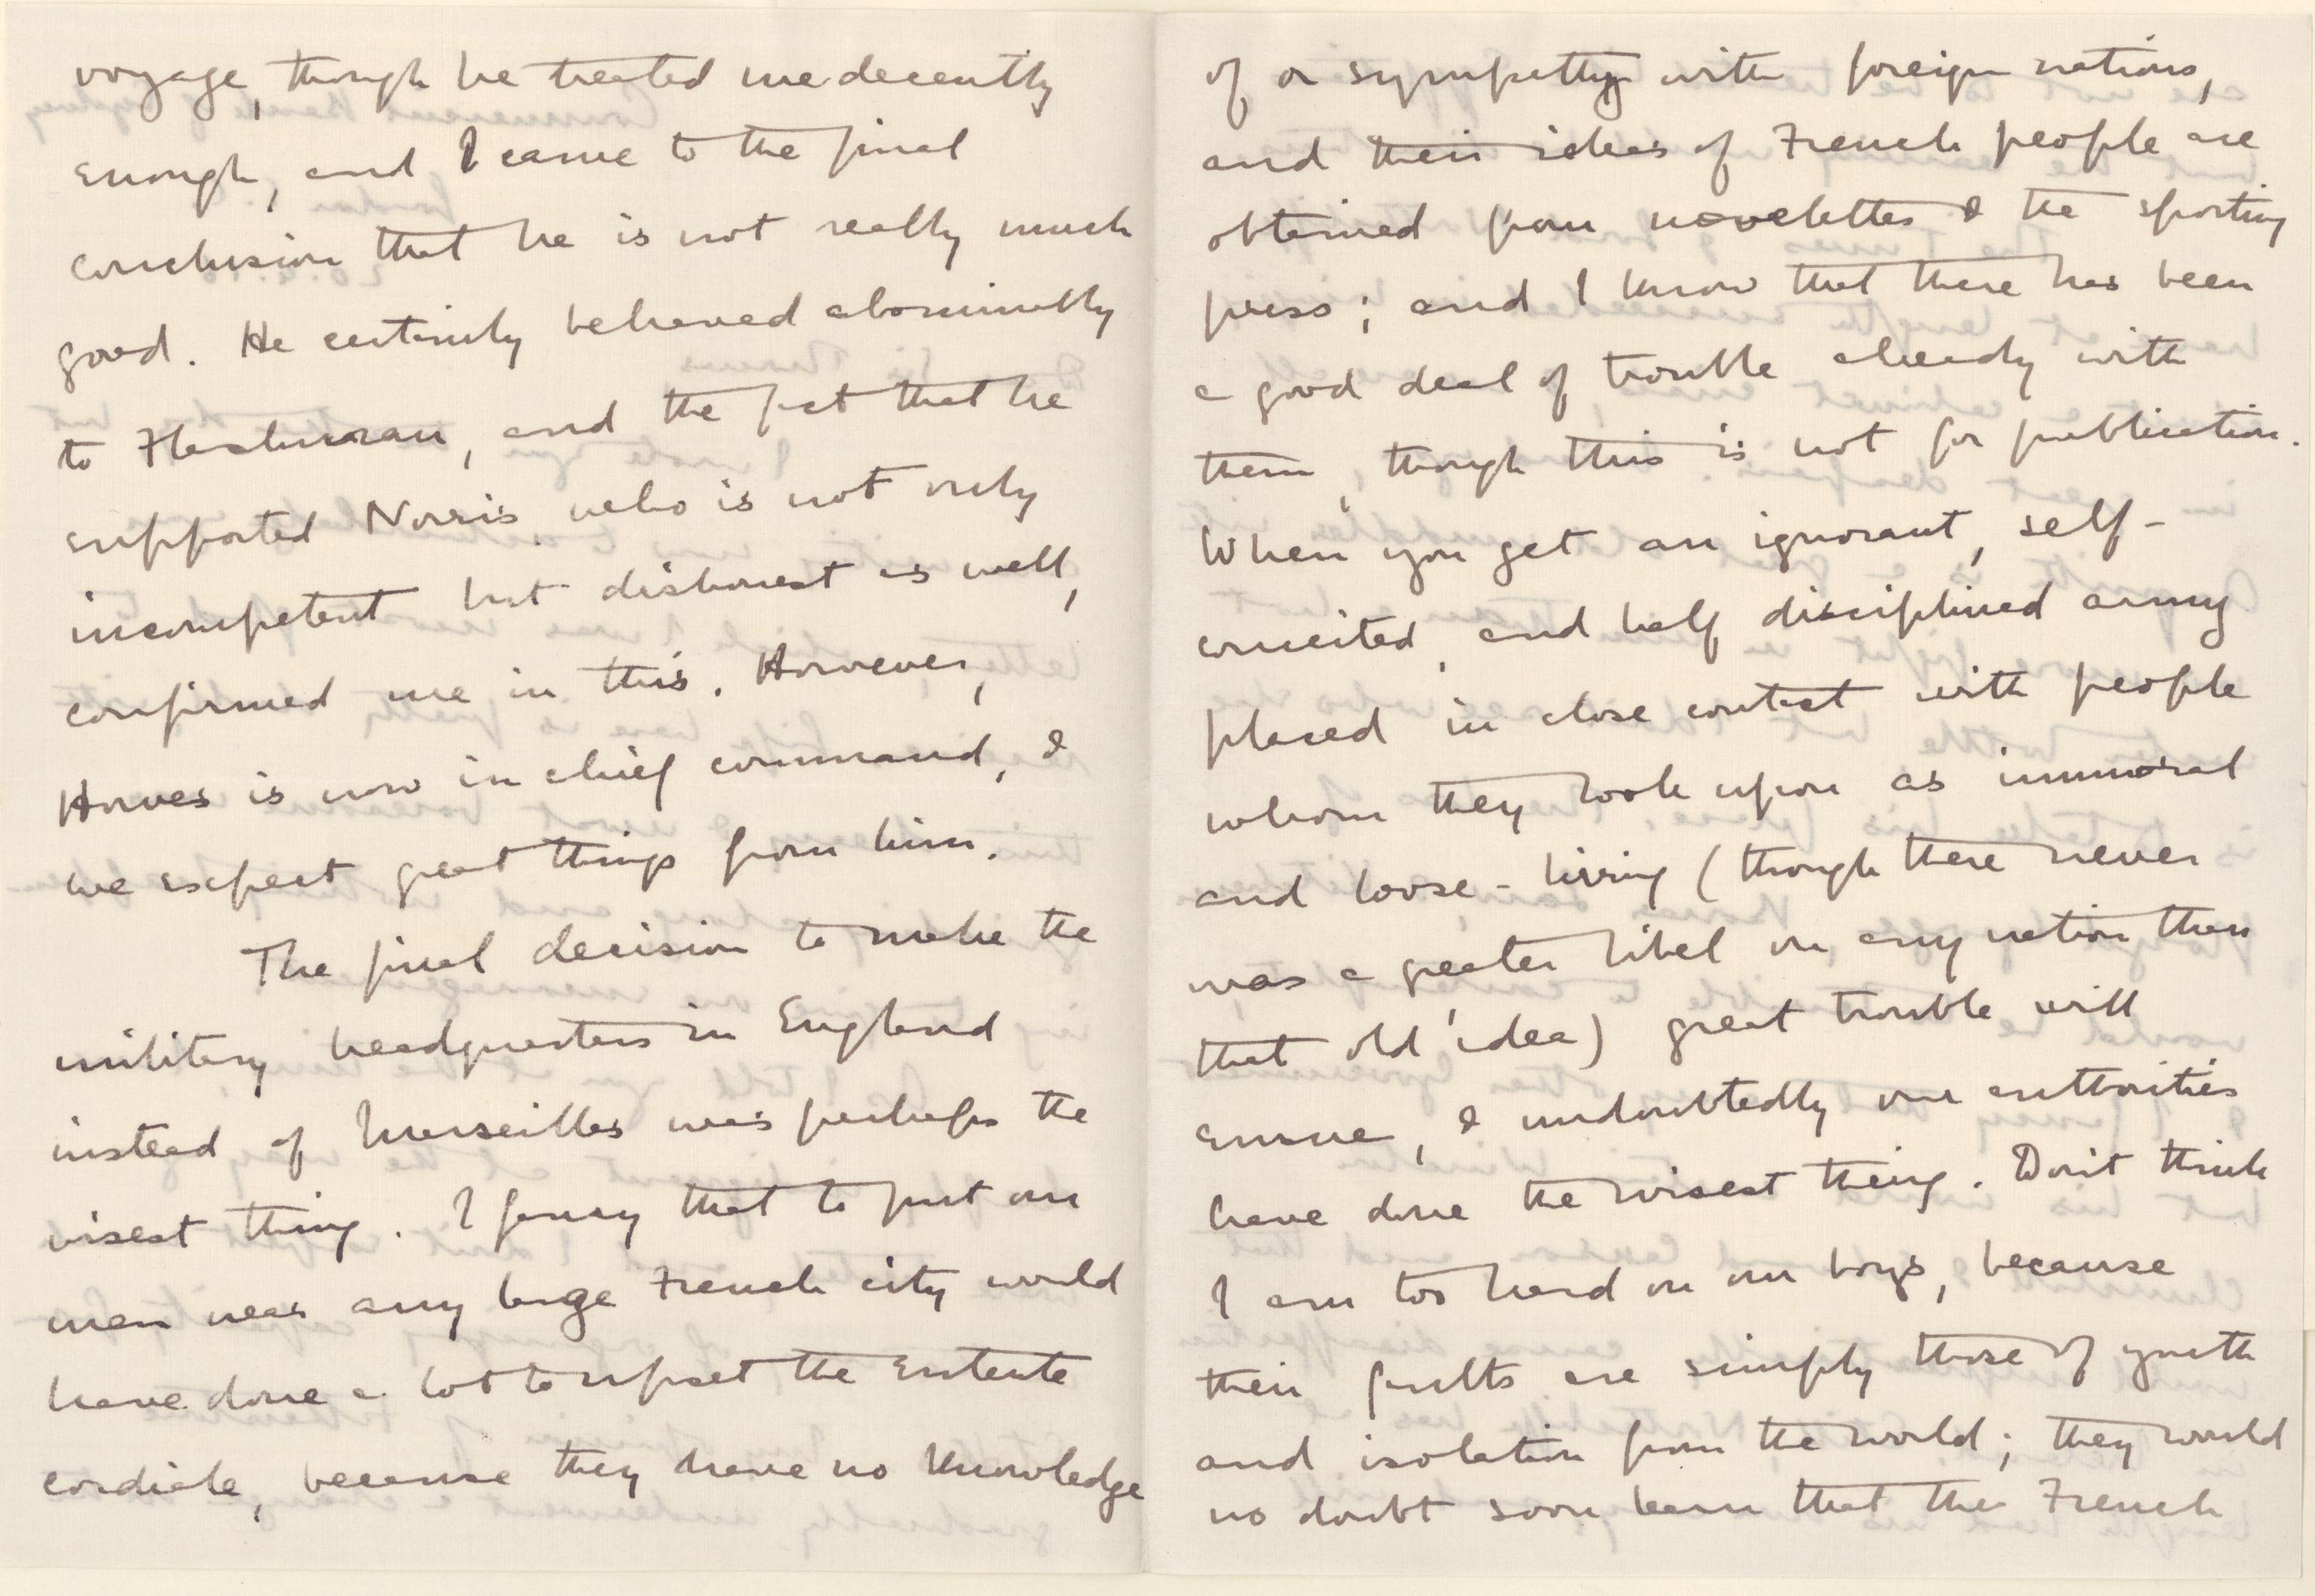 voyage, though he treated me decently
enough, and I came to the final
conclusion that he is not really much
good. He certainly behaved abominably
to Flashman, and the fact that he
supported Norris, who is not only
incompetent but dishonest as well,
confirmed me in this. However,
Howes is now in chief command, &
we expect great things from him.
The final decision to make the
military headquarters in England
instead of Marseilles was perhaps the
wisest thing. I fancy that to put our
men near any large French city would
have done a lot to upset the Entente
cordiale, because they have no knowledge
of or sympathy with foreign nations,
and their ideas of French people are
obtained from novelettes & the sporting
press; and I know that there has been
a good deal of trouble already with
them, though this is not for publication.
When you get an ignorant, self-
conceited, and half disciplined army
placed in close contact with people
whom they look upon as immoral
and loose-living (though there never
was a greater libel on any nation than
that old idea) great trouble will
ensue, & undoubtedly our authorities
have done the wisest thing. Don't think
I am too hard on our boys, because
their faults are simply those of youth
and isolation from the world; they would
no doubt soon learn that the French